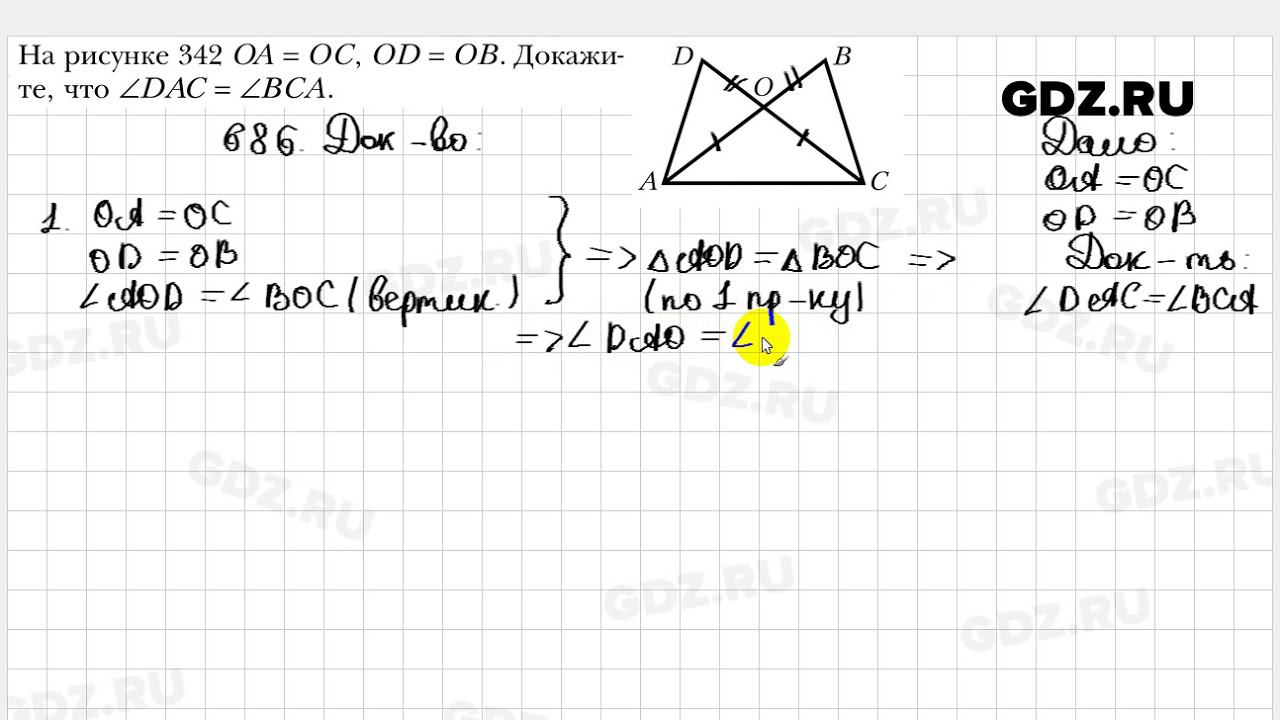 На рисунке 342 OA = OC, OD = OB. Докажи-
те, что ∠DAC = ∠BCA.
D
B
O
A
C
GDZ.RU
686. Док-во:
Дано:
OA = OC
OD = OB
Док-ть:
∠DAC = ∠BCA
1. OA = OC
OD = OB
∠AOD = ∠BOC (вертик.)
=> △AOD = △BOC =>
(по 1 пр-ку)
=> ∠DAO = ∠
GDZ.RU
GDZ.RU
GDZ.RU
GDZ.RU
GDZ.RU
GDZ.RU
GDZ.RU
GDZ.RU
GDZ.RU
GDZ.RU
GDZ.RU